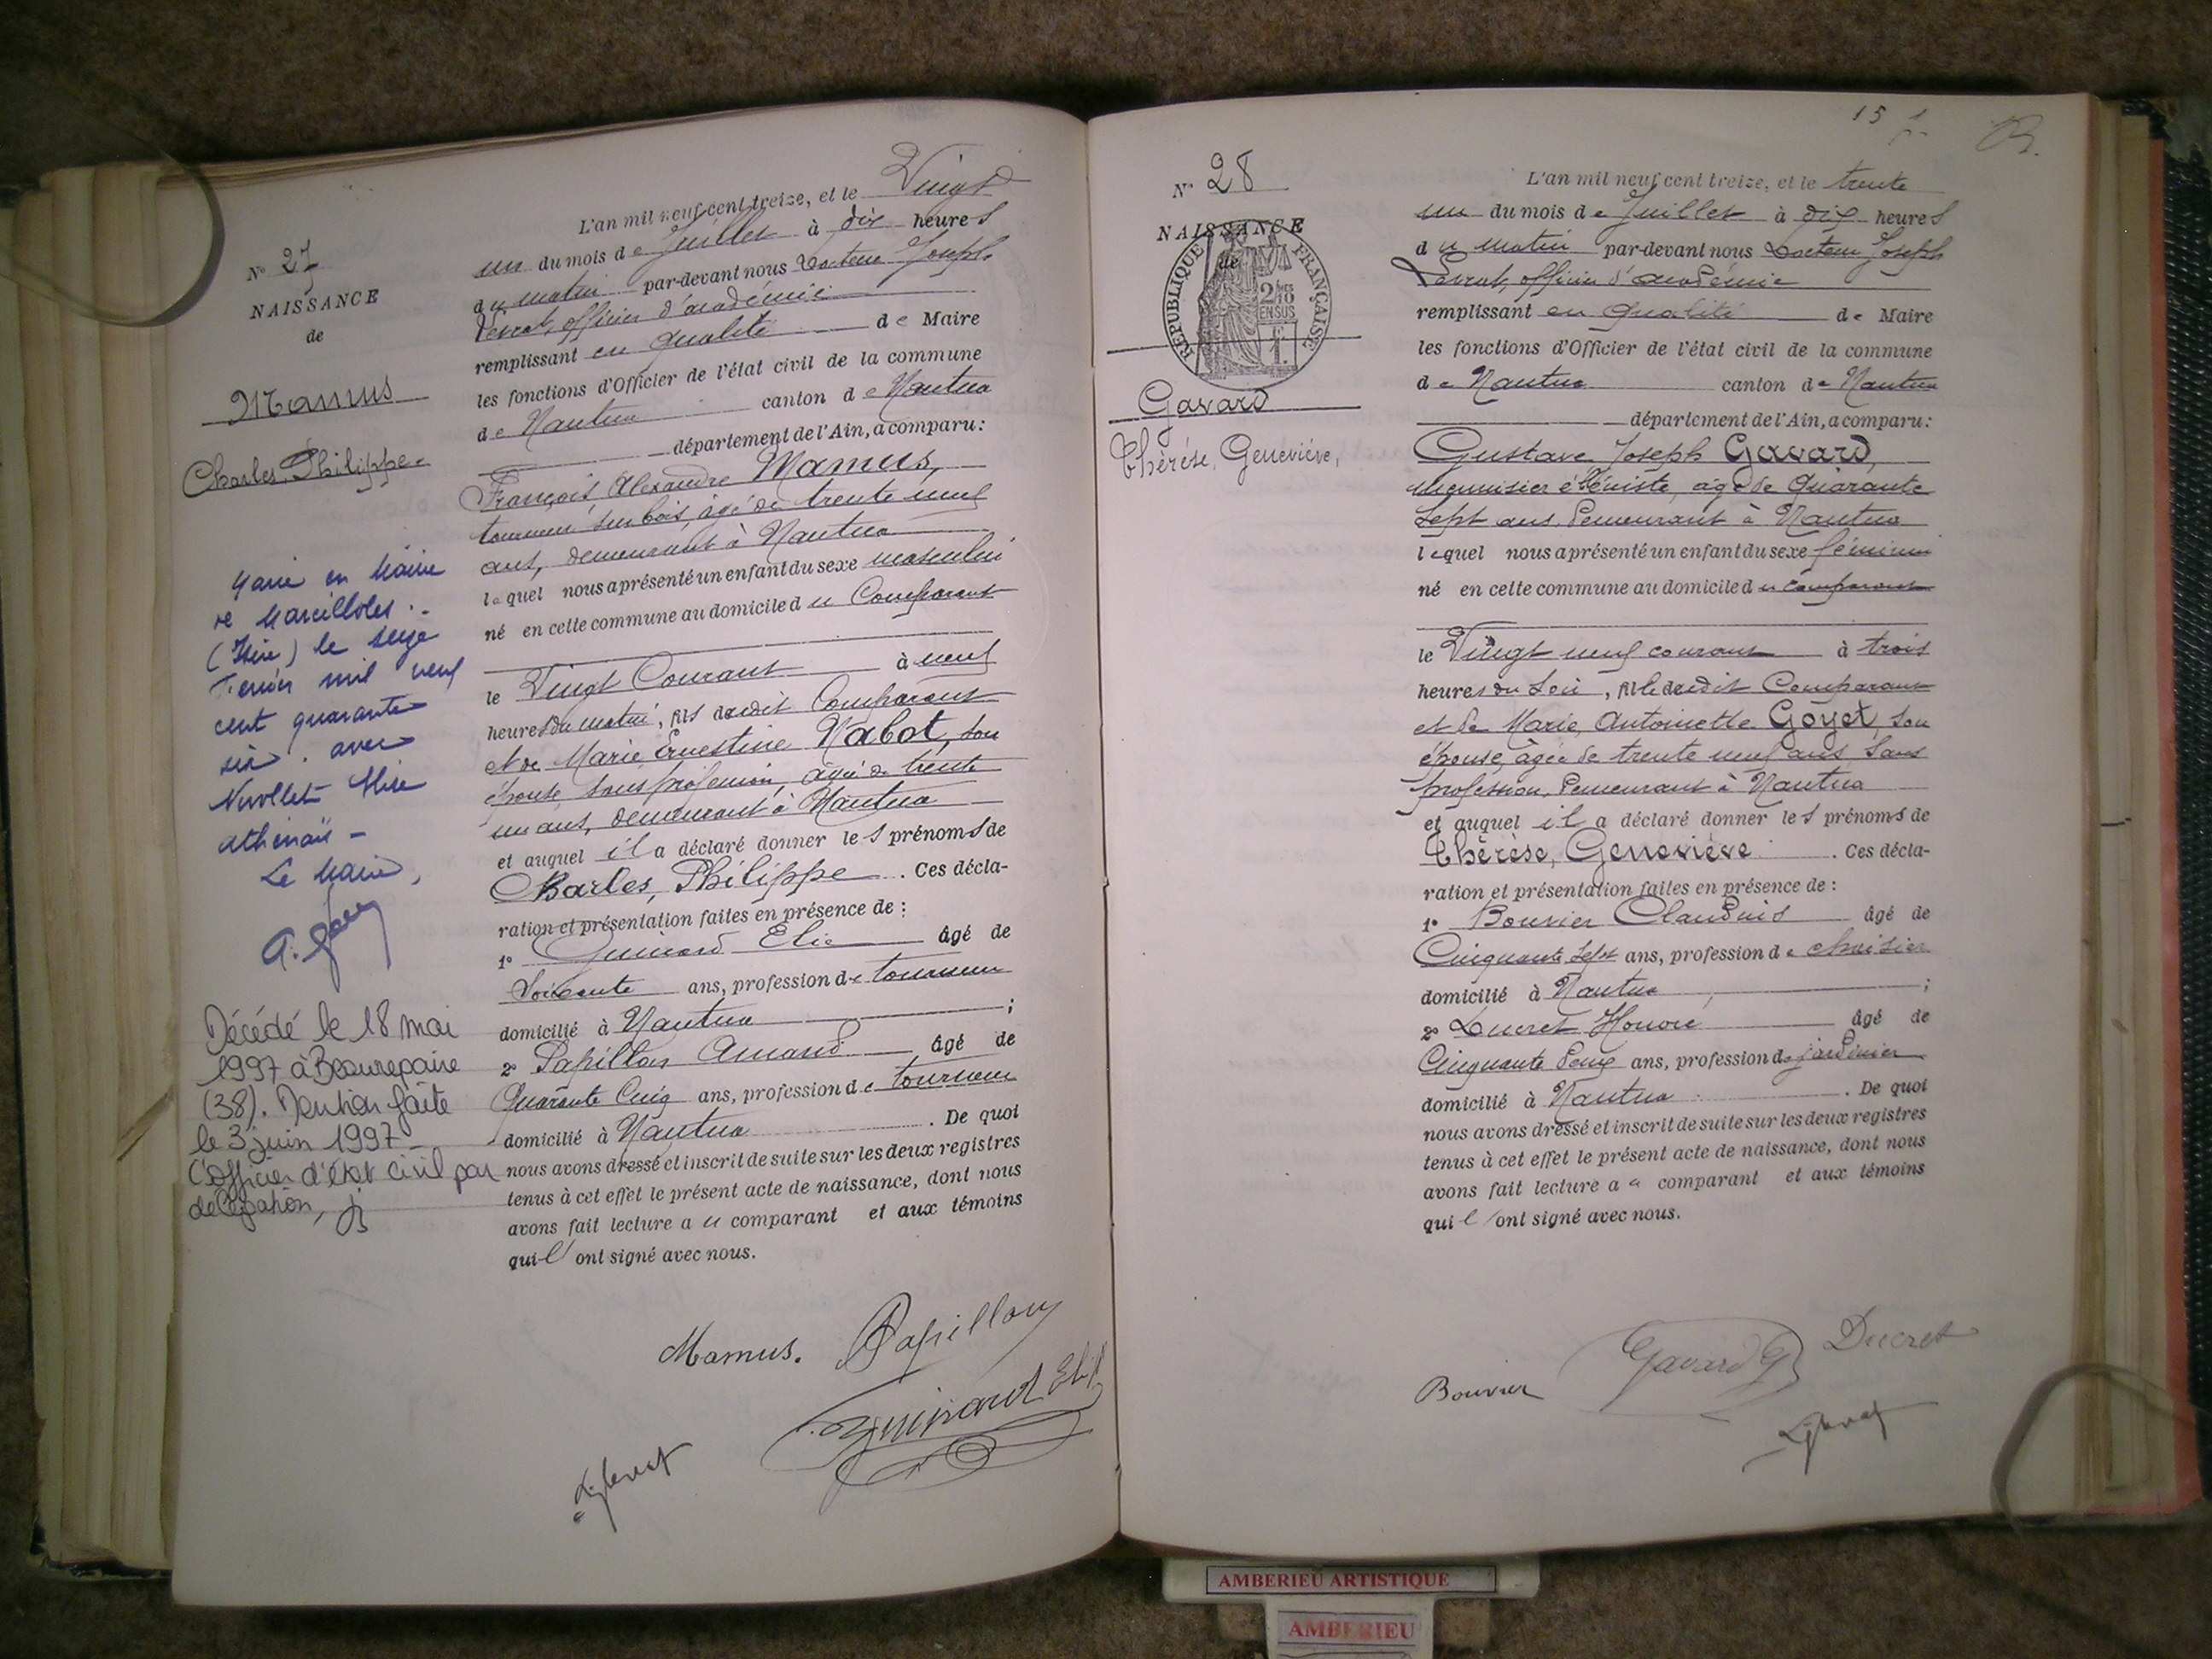 L'an mil neuf cent treize, et le Vingt
un du mois de Juillet à dix heures
du matin par-devant nous Docteur Joseph
Levrat, officier d'académie
remplissant en qualité de Maire
les fonctions d'Officier de l'état civil de la commune
de Nantua canton de Nantua
département de l'Ain, a comparu:
François, Alexandre Mamus,
tourneur sur bois, âgé de trente neuf
ans, demeurant à Nantua
lequel nous a présenté un enfant du sexe masculin
né en cette commune au domicile du Comparant
le Vingt Courant à neuf
heures du matin, fils dudit Comparant
et de Marie Ernestine Nabot, son
épouse, sans profession, âgée de trente
un ans, demeurant à Nantua
et auquel il a déclaré donner les prénoms de
Charles, Philippe. Ces décla-
ration et présentation faites en présence de:
1° Guinard Elie âgé de
Soixante ans, profession de tourneur
domicilié à Nantua ;
2° Papillon Amand âgé de
Quarante Cinq ans, profession de tourneur
domicilié à Nantua. De quoi
nous avons dressé et inscrit de suite sur les deux registres
tenus à cet effet le présent acte de naissance, dont nous
avons fait lecture au comparant et aux témoins
qui l'ont signé avec nous.
Mamus. Papillon
Guinard Elie
N° 27
NAISSANCE
de
Mamus
Charles, Philippe.
Marié en Mairie
de Marcilloles.
(Isère) le seize
Février mil neuf
cent quarante
six. avec
Nivollet Elise
Athénaïs -
Le Maire,
Décédé le 18 mai
1997 à Beaurepaire
(38). Mention faite
le 3 juin 1997
L'officier d'état civil par
délégation,
15
N° 28
NAISSANCE
de
RÉPUBLIQUE FRANÇAISE
2/10
EN SUS
Gavard
Thérèse, Geneviève,
L'an mil neuf cent treize, et le trente
un du mois de Juillet à dix heures
du matin par-devant nous Docteur Joseph
Levrat, officier d'académie
remplissant en qualité de Maire
les fonctions d'Officier de l'état civil de la commune
de Nantua canton de Nantua
département de l'Ain, a comparu:
Gustave Joseph Gavard,
menuisier ébéniste, âgé de Quarante
Sept ans, demeurant à Nantua
lequel nous a présenté un enfant du sexe féminin
né en cette commune au domicile du comparant
le Vingt neuf courant à trois
heures du soir, fille dudit Comparant
et de Marie, Antoinette Goyet, son
épouse, âgée de trente neuf ans, sans
profession, demeurant à Nantua
et auquel il a déclaré donner les prénoms de
Thérèse, Geneviève. Ces décla-
ration et présentation faites en présence de:
1° Bouvier Claudius âgé de
Cinquante Sept ans, profession de chaisier
domicilié à Nantua ;
2° Ducret Honoré âgé de
Cinquante Deux ans, profession de jardinier
domicilié à Nantua. De quoi
nous avons dressé et inscrit de suite sur les deux registres
tenus à cet effet le présent acte de naissance, dont nous
avons fait lecture au comparant et aux témoins
qui l'ont signé avec nous.
Bouvier Gavard G Ducret
AMBERIEU ARTISTIQUE
AMBERIEU